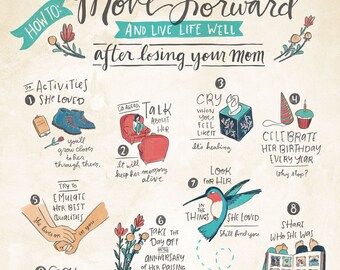 HOW TO:
Move Forward
AND LIVE LIFE WELL
after losing your Mom
1
Do ACTIVITIES
SHE LOVED
you'll
grow closer
to her
through them.
2
GO AHEAD,
TALK
ABOUT
HER
It will
keep her memory
alive
3
CRY
WHEN
YOU
FEEL
LIKE IT
It's healing
4
CELEBRATE
HER BIRTHDAY
EVERY YEAR
Why stop?
5
TRY TO
EMULATE
HER BEST
QUALITIES
She lives on
in you
6
TAKE THE
DAY OFF
on the
ANNIVERSARY
OF HER PASSING
7
LOOK
FOR HER
IN THE
THINGS
SHE LOVED
She'll find you
8
SHARE
WHO SHE WAS